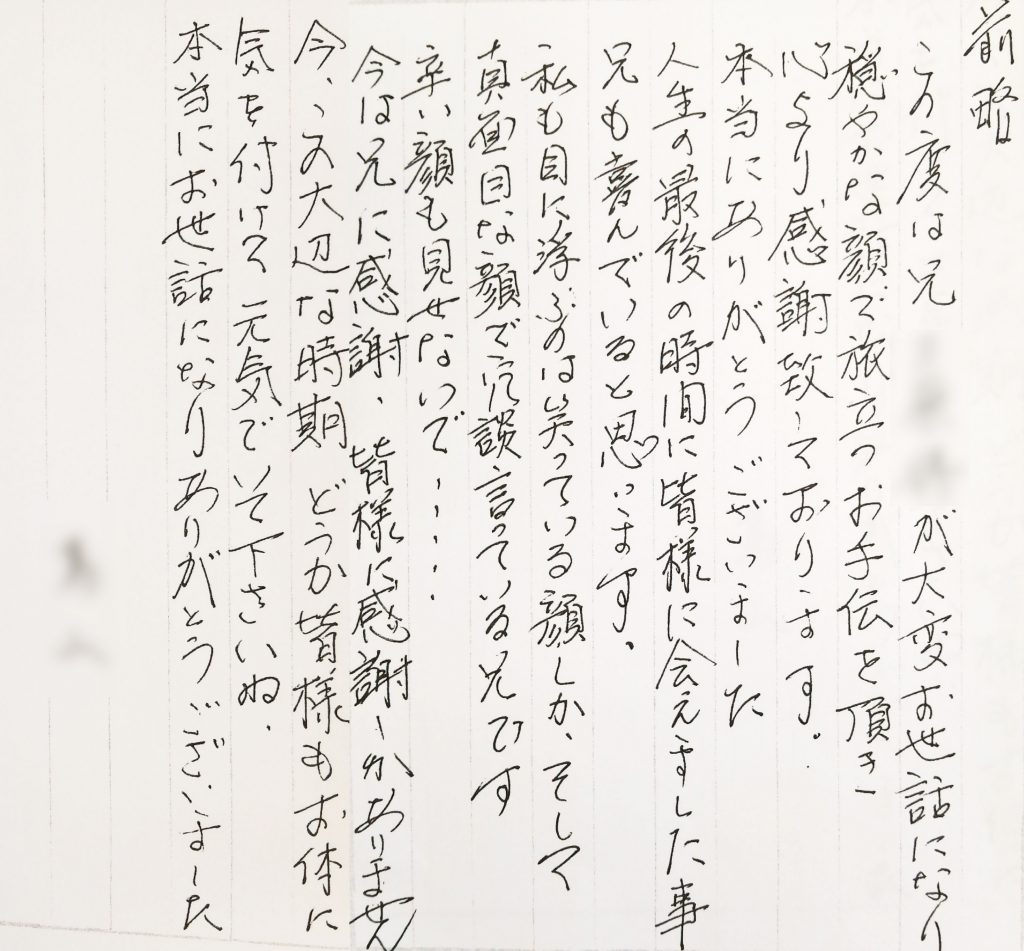 前略
この度は兄 が大変お世話になり
穏やかな顔で旅立つお手伝を頂き
心より感謝致しております。
本当にありがとうございました
人生の最後の時間に皆様に会えました事
兄も喜んでいると思います。
私も目に浮ぶのは笑っている顔しか、そして
真面目な顔で冗談言っている兄です
辛い顔も見せないで・・・・
今は兄に感謝、皆様に感謝しかありません
今、この大辺な時期 どうか皆様もお体に
気を付けて元気でいて下さいね。
本当にお世話になりありがとうございました